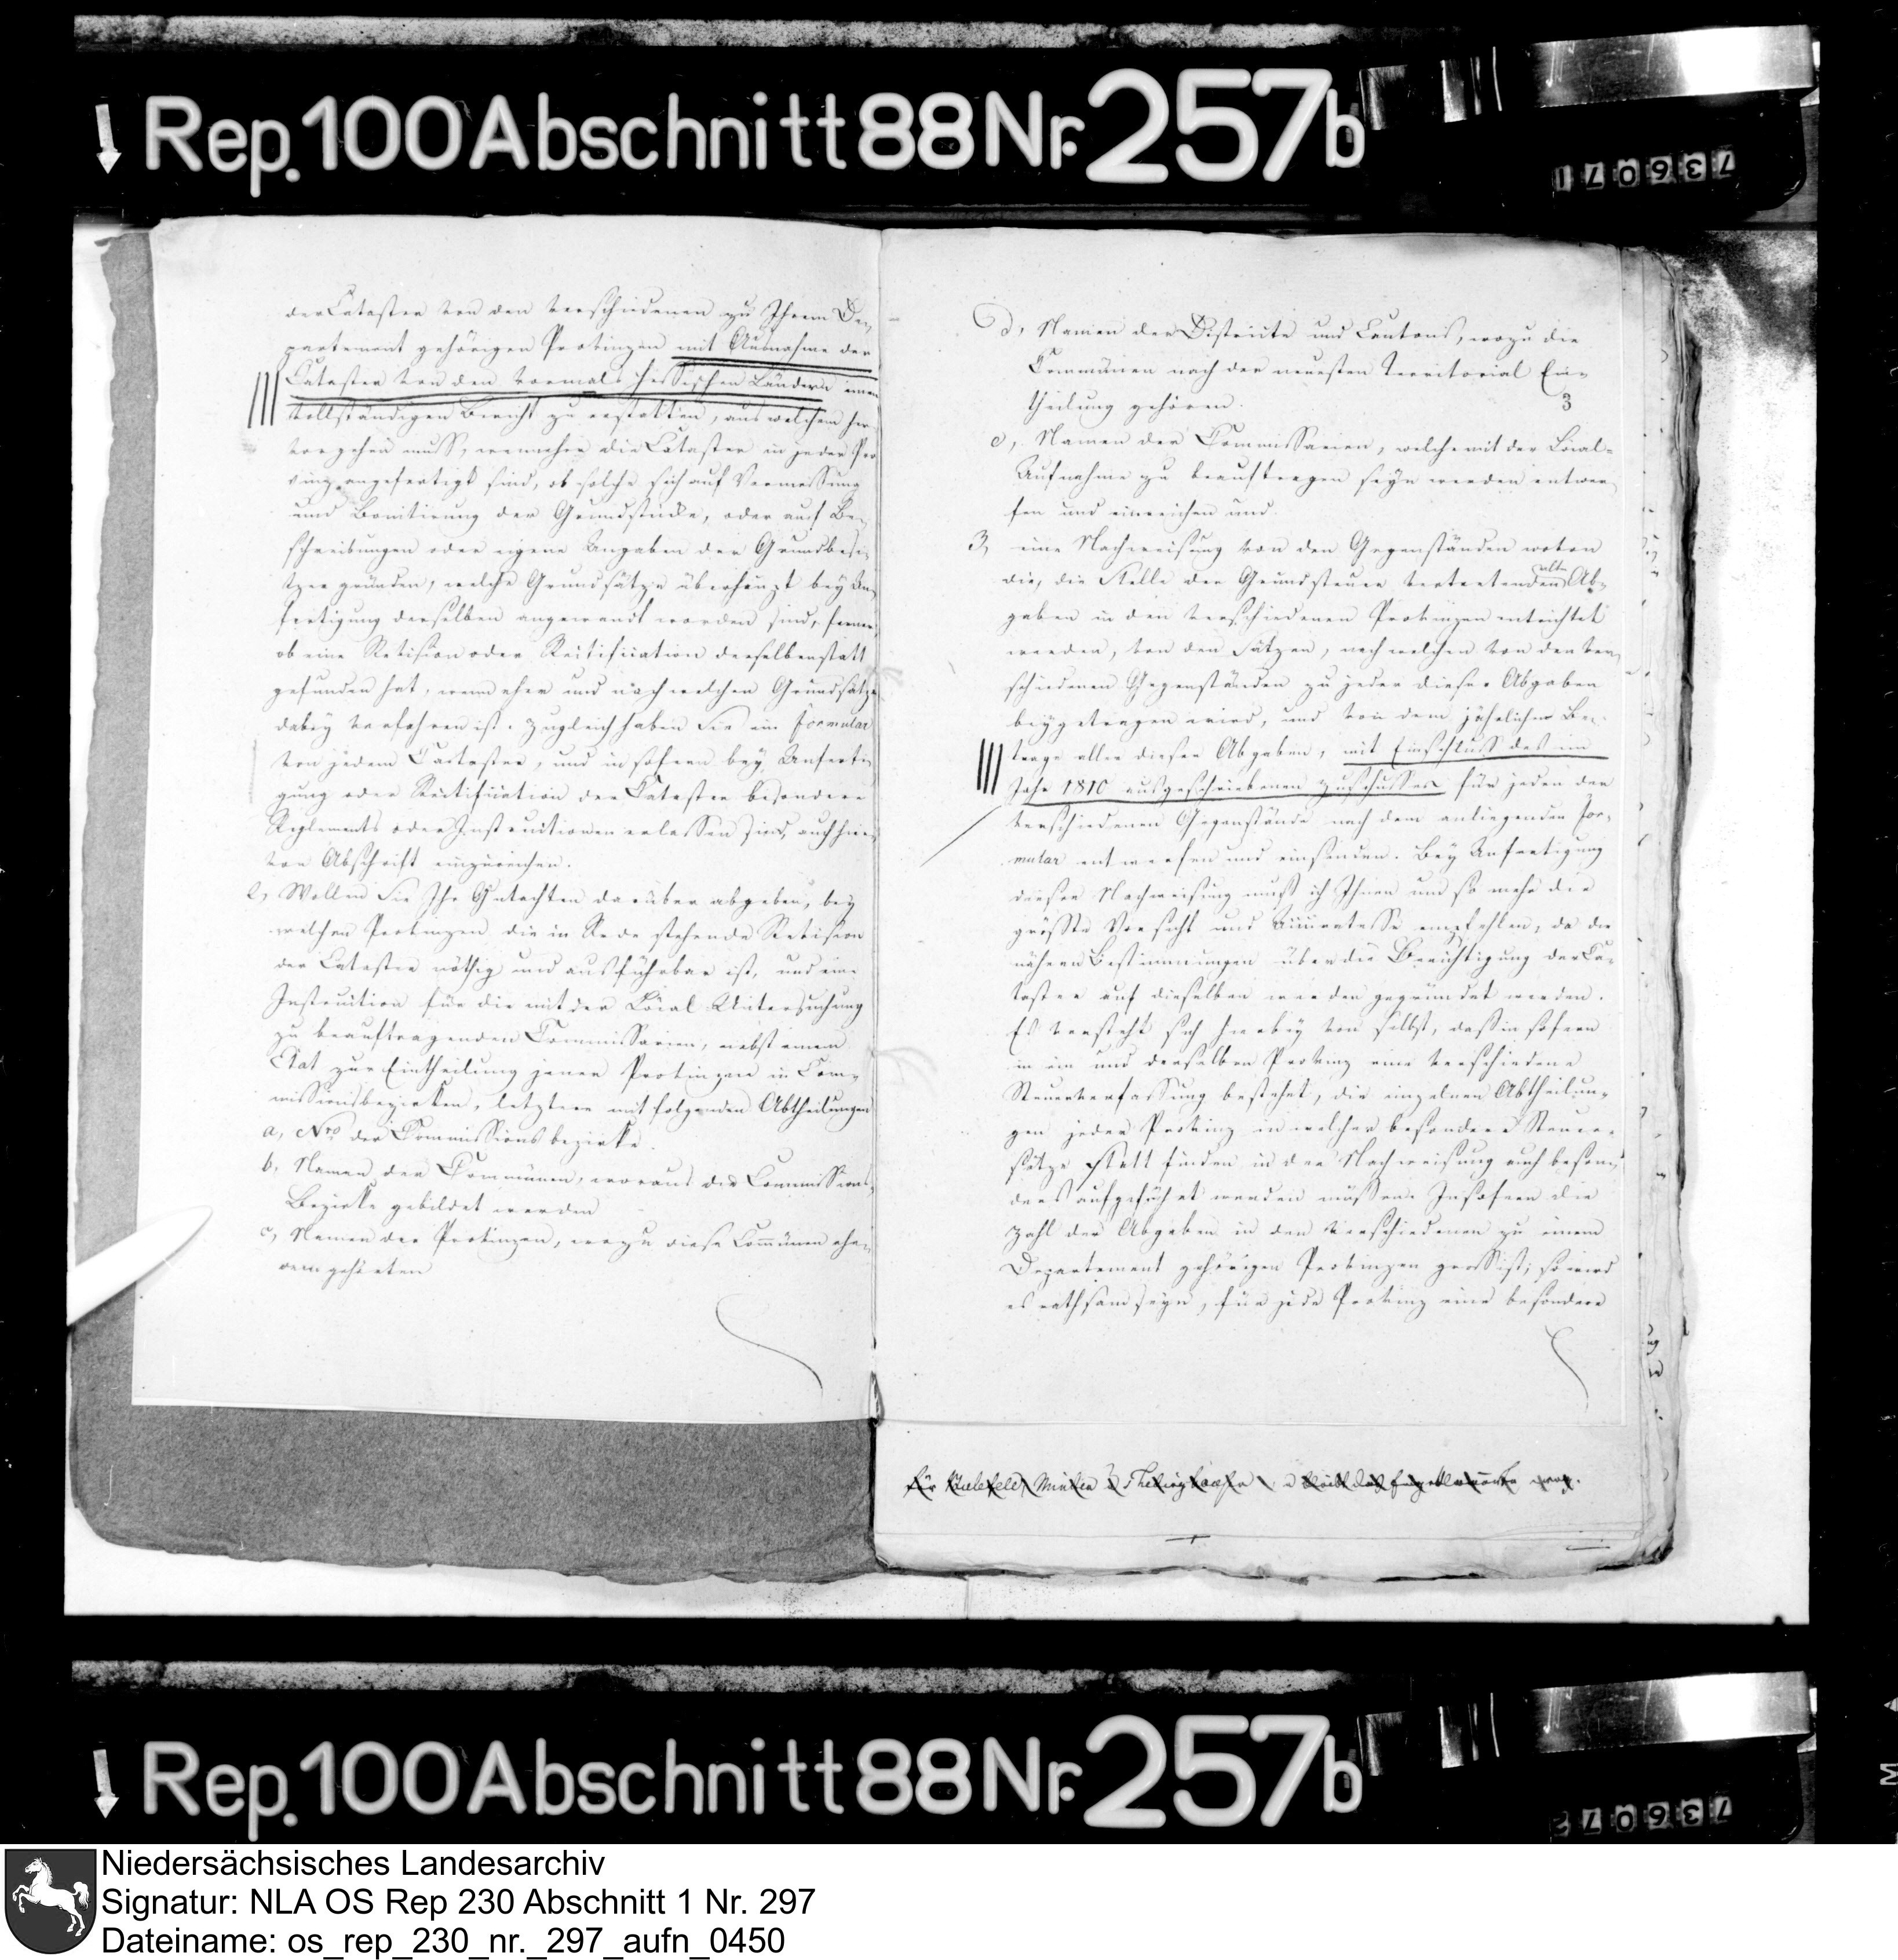 Rep. 100 Abschnitt 88 Nr. 257b
736071
der Cataster von den verschiedenen zu Ihrem De-
partement gehörigen Provinzen mit Ausnahme der
Cataster von den vormals hessischen Ländern einen
vollständigen Bericht zu erstatten, aus welchem her-
vorgehen muss, wannehr die Cataster in jeder Pro-
vinz angefertigt sind, ob solche sich auf Vermessung
und Bonitirung der Grundstücke, oder auf Be-
schreibungen oder eigene Angaben der Grundbesi-
tzer gründen, welche Grundsätze überhaupt bey An-
fertigung derselben angewandt worden sind, ferner,
ob eine Revision oder Rectification derselben statt
gefunden hat, wenn eher und nach welchen Grundsätzen
dabey verfahren ist. Zugleich haben Sie ein formular
von jedem Cataster, und in sofern bey Anferti-
gung oder Rectification der Cataster besondere
Reglements oder Instructionen erlassen sind, auch hier-
von Abschrift einzureichen.
2, Wollen Sie Ihr Gutachten darüber abgeben, bey
welchen Provinzen die in Rede stehende Revision
der Cataster nöthig und ausführbar ist, und eine
Instruction für die mit der Local Untersuchung
zu beauftragenden Commissarien, nebst einem
Etat zur Eintheilung jener Provinzen in Com-
missionsbezirken, letztere mit folgenden Abtheilungen
a, Nro der Commissionsbezirke.
b, Namen der Communen, woraus die Commissions-
Bezirke gebildet werden
c, Namen der Provinzen, wozu diese Com̄unen ehe-
dem gehörten
d, Namen der Districte und Cantons, wozu die
Communen nach der neuesten Territorial Ein-
theilung gehören.
3
e, Namen der Commissarien, welche mit der Local-
Aufnahme zu beauftragen seyn werden entwer-
fen und einreichen und
3, eine Nachweisung von den Gegenständen wovon
die, die Stelle der Grundsteuer vertretenden alten Ab-
gaben in den verschiedenen Provinzen entrichtet
werden, von den Sätzen, nach welchen von den ver-
schiedenen Gegenständen zu jeder dieser Abgaben
beygetragen wird, und von dem jährlichen Be-
trage aller dieser Abgaben, mit Einschluss des im
Jahr 1810 ausgeschriebenen Zuschusses für jeden der
verschiedenen Gegenstände nach dem anliegenden for-
mular entwerfen und einsenden. Bey Anfertigung
dieser Nachweisung muß ich Ihnen um so mehr die
größte Vorsicht und Accuratesse empfehlen, da die
nähern Bestimmungen über die Berichtigung der Ca-
taster auf dieselben werden gegründet werden.
Es versteht sich hierbey von selbst, daß in sofern
in ein und derselben Provinz eine verschiedene
Steuerverfassung bestehet, die einzelnen Abtheilun-
gen jeder Provinz in welcher besondere Steuer-
sätze statt finden in der Nachweisung auch beson-
ders aufgeführt werden müssen. Insofern die
Zahl der Abgaben in den verschiedenen zu einem
Departement gehörigen Provinzen gross ist, so wird
es rathsam seyn, für jede Provinz eine besondere
für Bielefeld, Minden
Rep. 100 Abschnitt 88 Nr. 257b
736072
Niedersächsisches Landesarchiv
Signatur: NLA OS Rep 230 Abschnitt 1 Nr. 297
Dateiname: os_rep_230_nr._297_aufn_0450